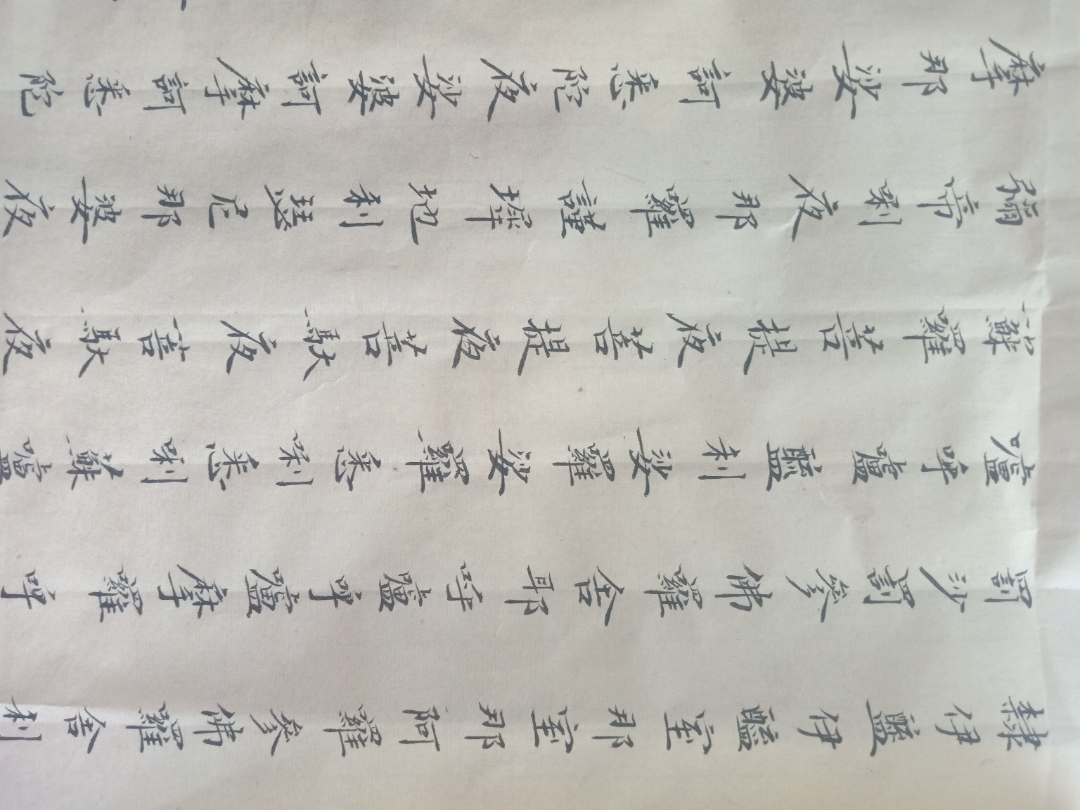 隸伊醯伊醯室那室那阿羅參佛羅舍利
罰沙罰參佛羅舍耶呼嚧呼嚧摩囉呼
嚧呼嚧醯利娑羅娑羅悉唎悉唎蘇嚧
蘇囉菩提夜菩提夜菩馱夜菩馱夜
彌帝唎夜那囉謹墀地利瑟尼那婆夜
摩那娑婆訶悉陀夜娑婆訶摩訶悉陀